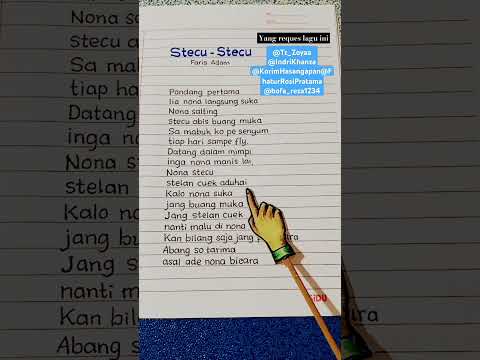 Yang reques lagu ini
@Tz_Zeyaa
@IndriKhanza
@KorimHasangapan@F
haturRosiPratama
@bofa_reza1234
Stecu - Stecu
Faris Adam
Pandang pertama
lia nona langsung suka
Nona salting
stecu abis buang muka
Sa mabuk ko pe senyum
tiap hari sampe fly.
Datang dalam mimpi
inga nona manis lai.
Nona stecu
stelan cuek aduhai
Kalo nona suka
jang buang muka
Jang stelan cuek
nanti malu di nona
Kan bilang saja jang
Abang so tarima
asal ade nona bicara
SiDU
Datang dalam mimpi
inga nona
Nona stecu
stelan cuek
Kalo nona
jang buang
Jang stelan
nanti malu
Kan bilang
Abang so
stecu abis
Sa mabuk
tiap hari
ura